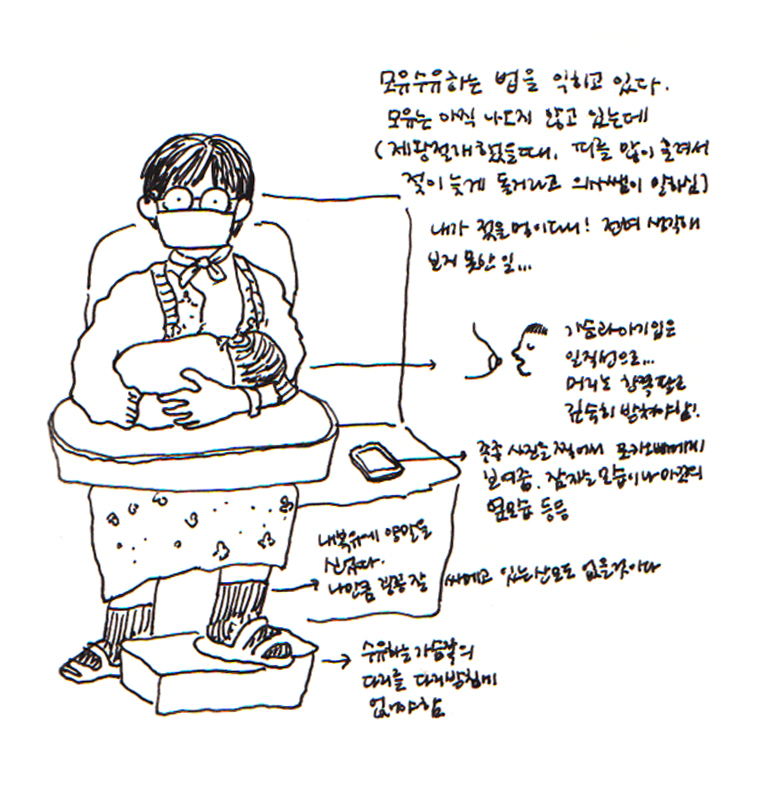 모유수유하는 법을 익히고 있다.
모유는 아직 나오지 않고 있는데
(제왕절개했을때, 피를 많이 흘려서
젖이 늦게 돌거라고 의사쌤이 말하심)
내가 젖을 먹이다니! 전혀 생각해
보지 못한 일...
가슴과 아기입은
일직선으로...
머리는 한쪽 팔로
깊숙히 받쳐야함!
종종 사진을 찍어서 모카오빠에게
보여줌. 잠자는 모습이나
옆모습 등등
내복위에 양말을
신었다.
나만큼 꽁꽁 잘 싸매고 있는 산모도 없을것이다
수유하는 가슴쪽의
다리를 다리받침에
얹어야함